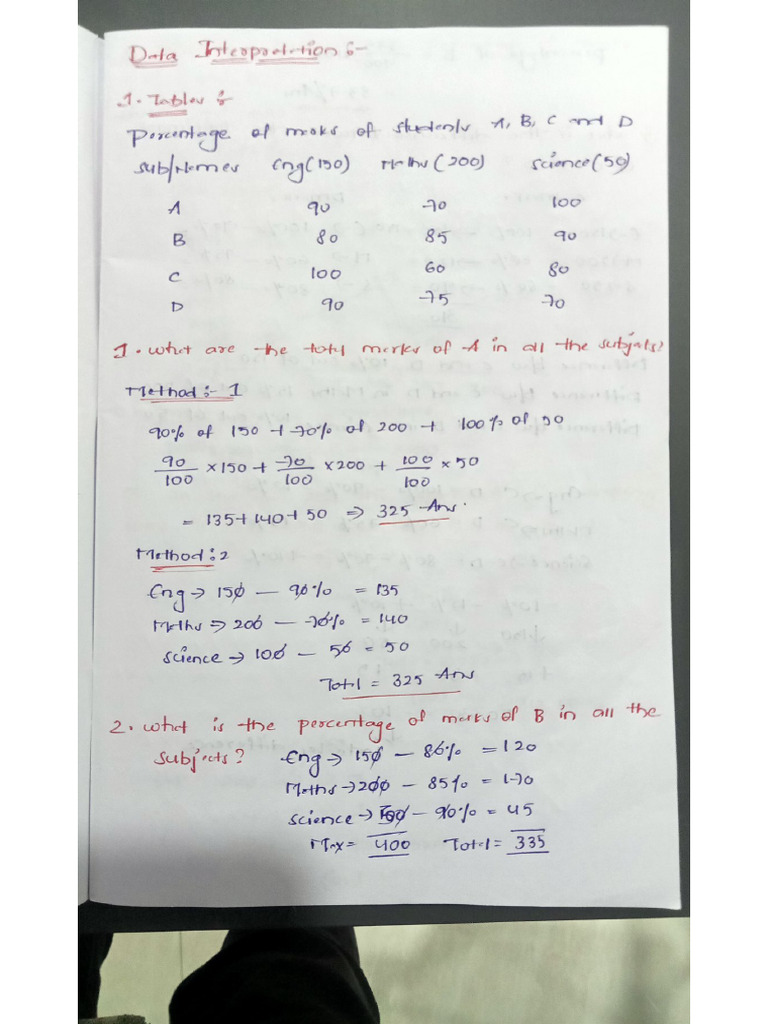 Data Interpretation :-
1. Tables :
Percentage of marks of students A, B, C and D
Sub/Names Eng(150) Maths(200) Science(50)
A 90 70 100
B 80 85 90
C 100 60 80
D 90 75 70
1. What are the total marks of A in all the subjects?
Method :- 1
90% of 150 + 70% of 200 + 100% of 50
90/100 × 150 + 70/100 × 200 + 100/100 × 50
= 135 + 140 + 50 ⇒ 325 Ans.
Method : 2
Eng → 150 — 90% = 135
Maths ⇒ 200 — 70% = 140
Science → 100 — 50 = 50
Total = 325 Ans
2. What is the percentage of marks of B in all the
subjects? Eng → 150 — 80% = 120
Maths → 200 — 85% = 170
Science → 50 — 90% = 45
Max = 400 Total = 335